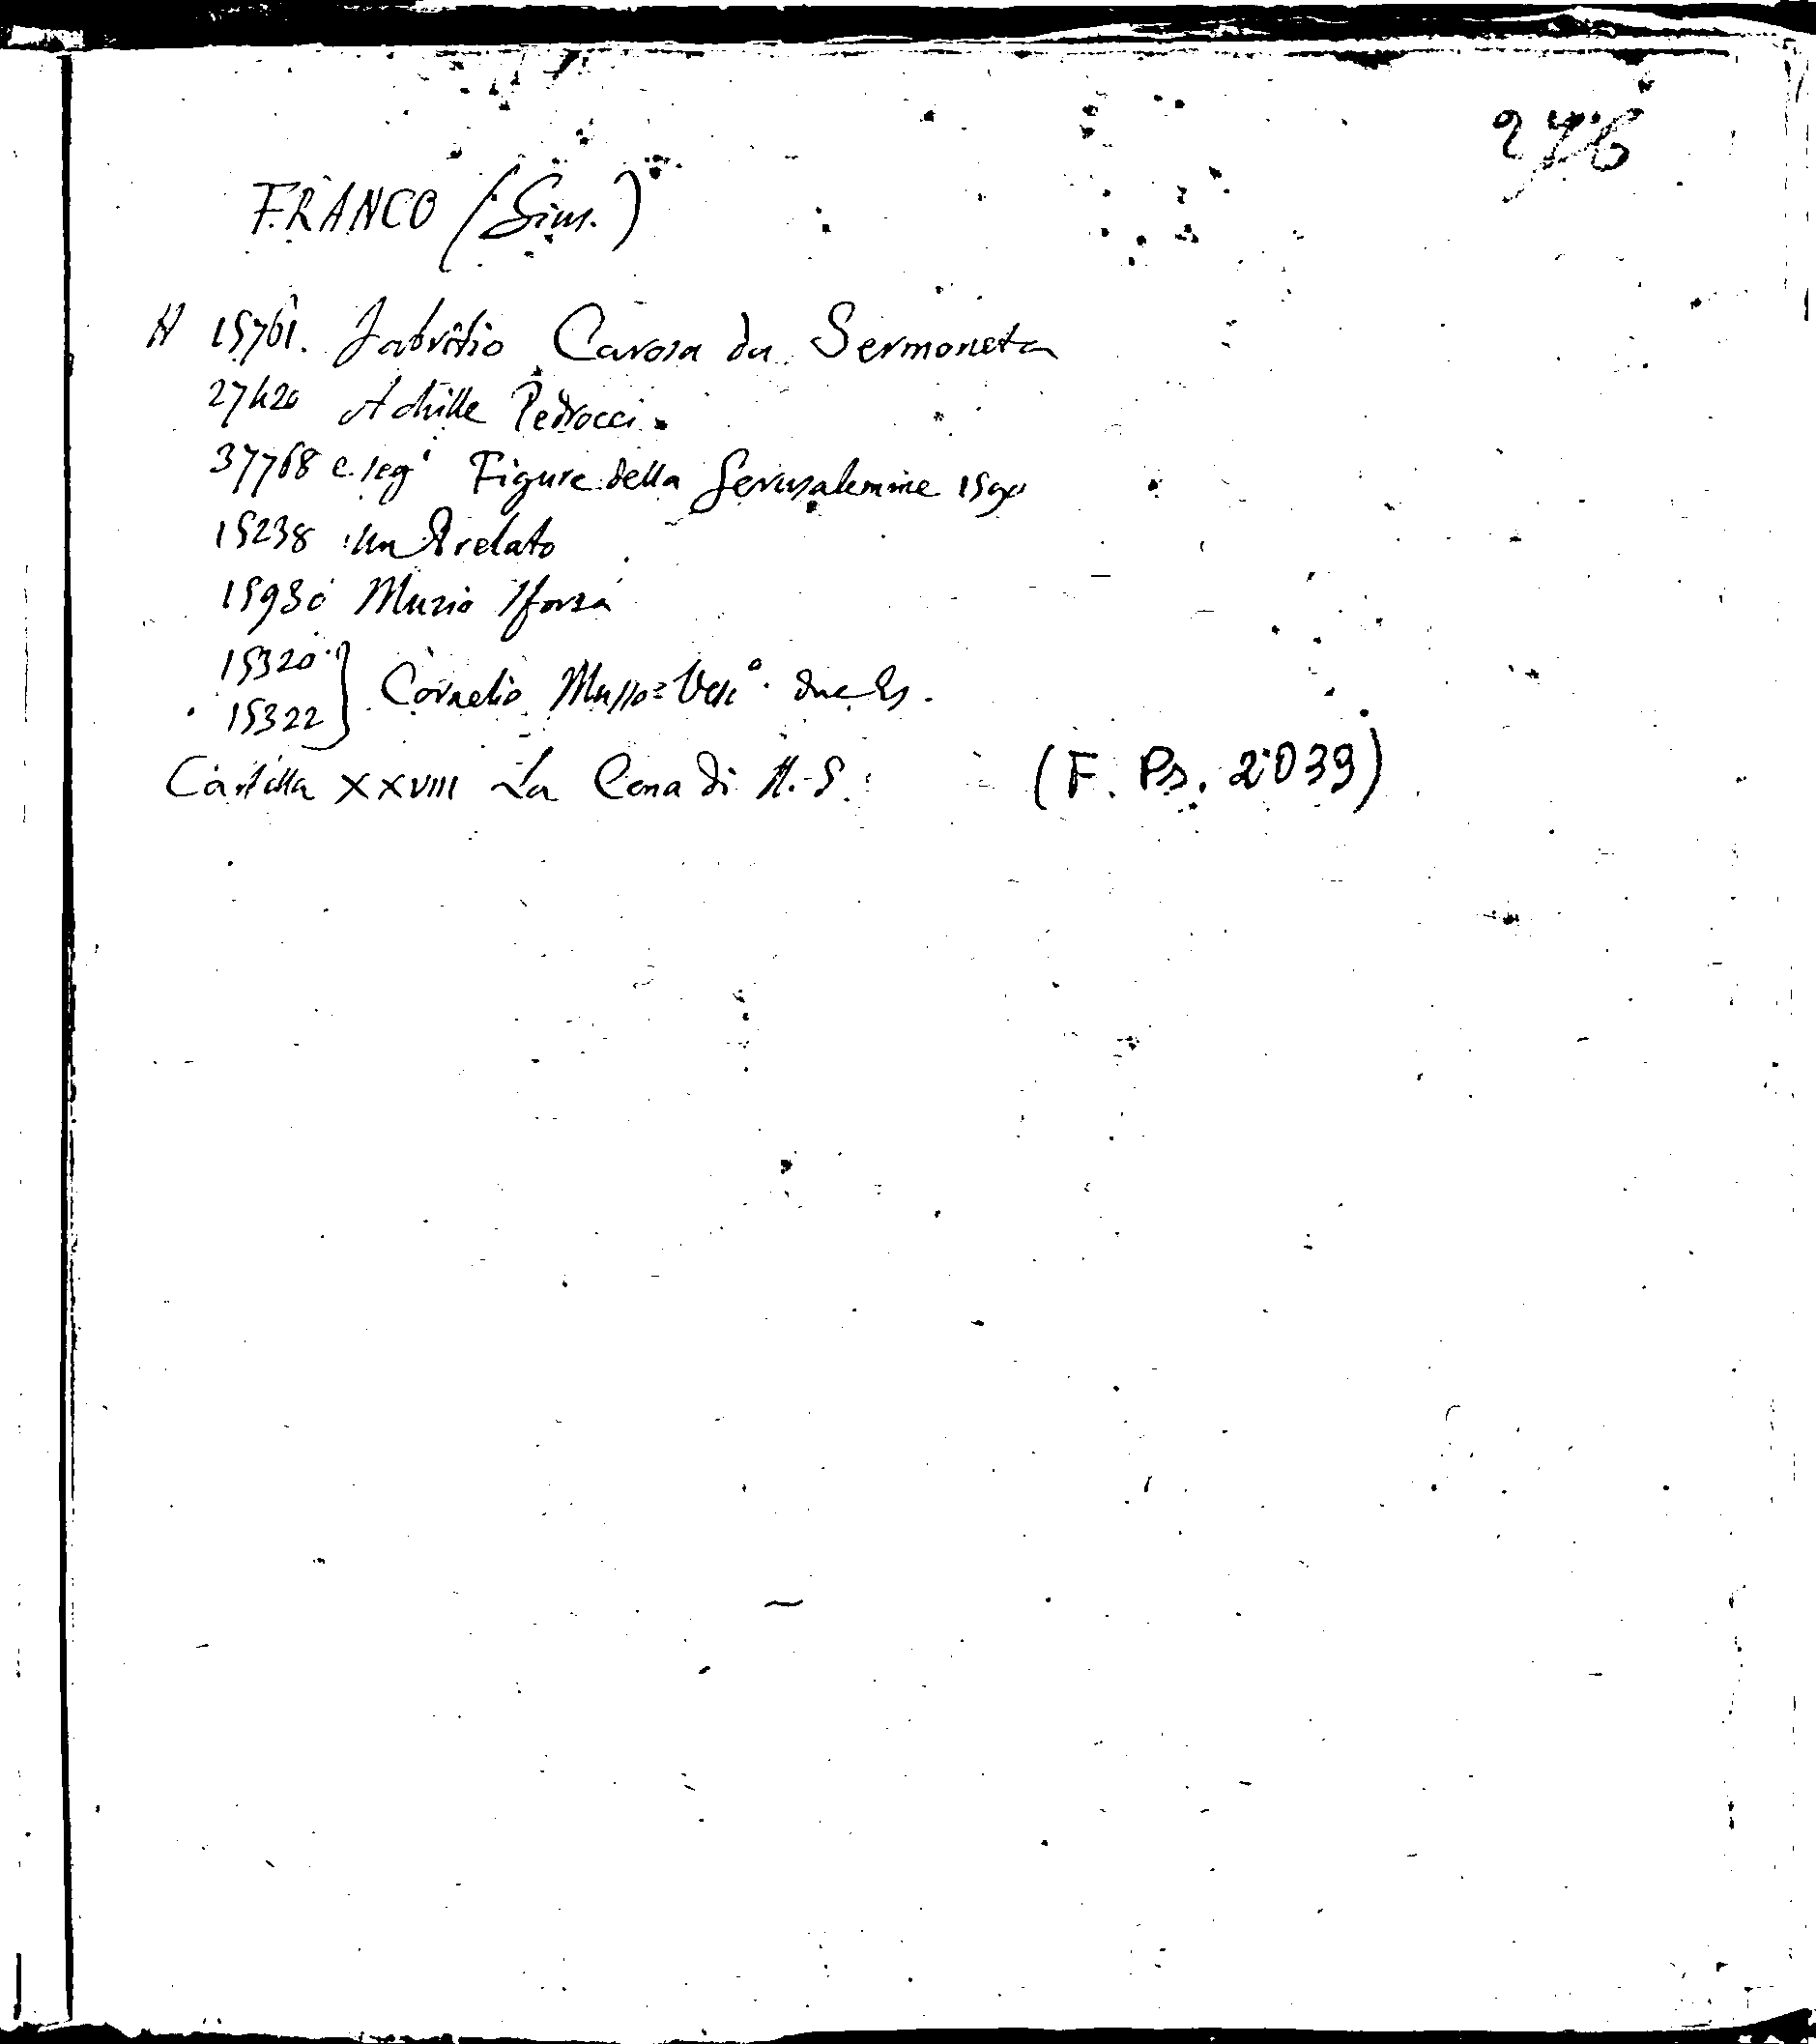 276
FRANCO (Giac.)
N 15761. Fabritio Caroso da Sermoneta
27420 Achille Pedrocci
37768 e seg.i Figure della Gerusalemme 1590
15238 un Prelato
15930 Muzio Sforza
15320
15322 } Cornelio Musso Vesc.o due Es.
Cartella XXVIII La Cena di N.S. (F. Ps. 2039)